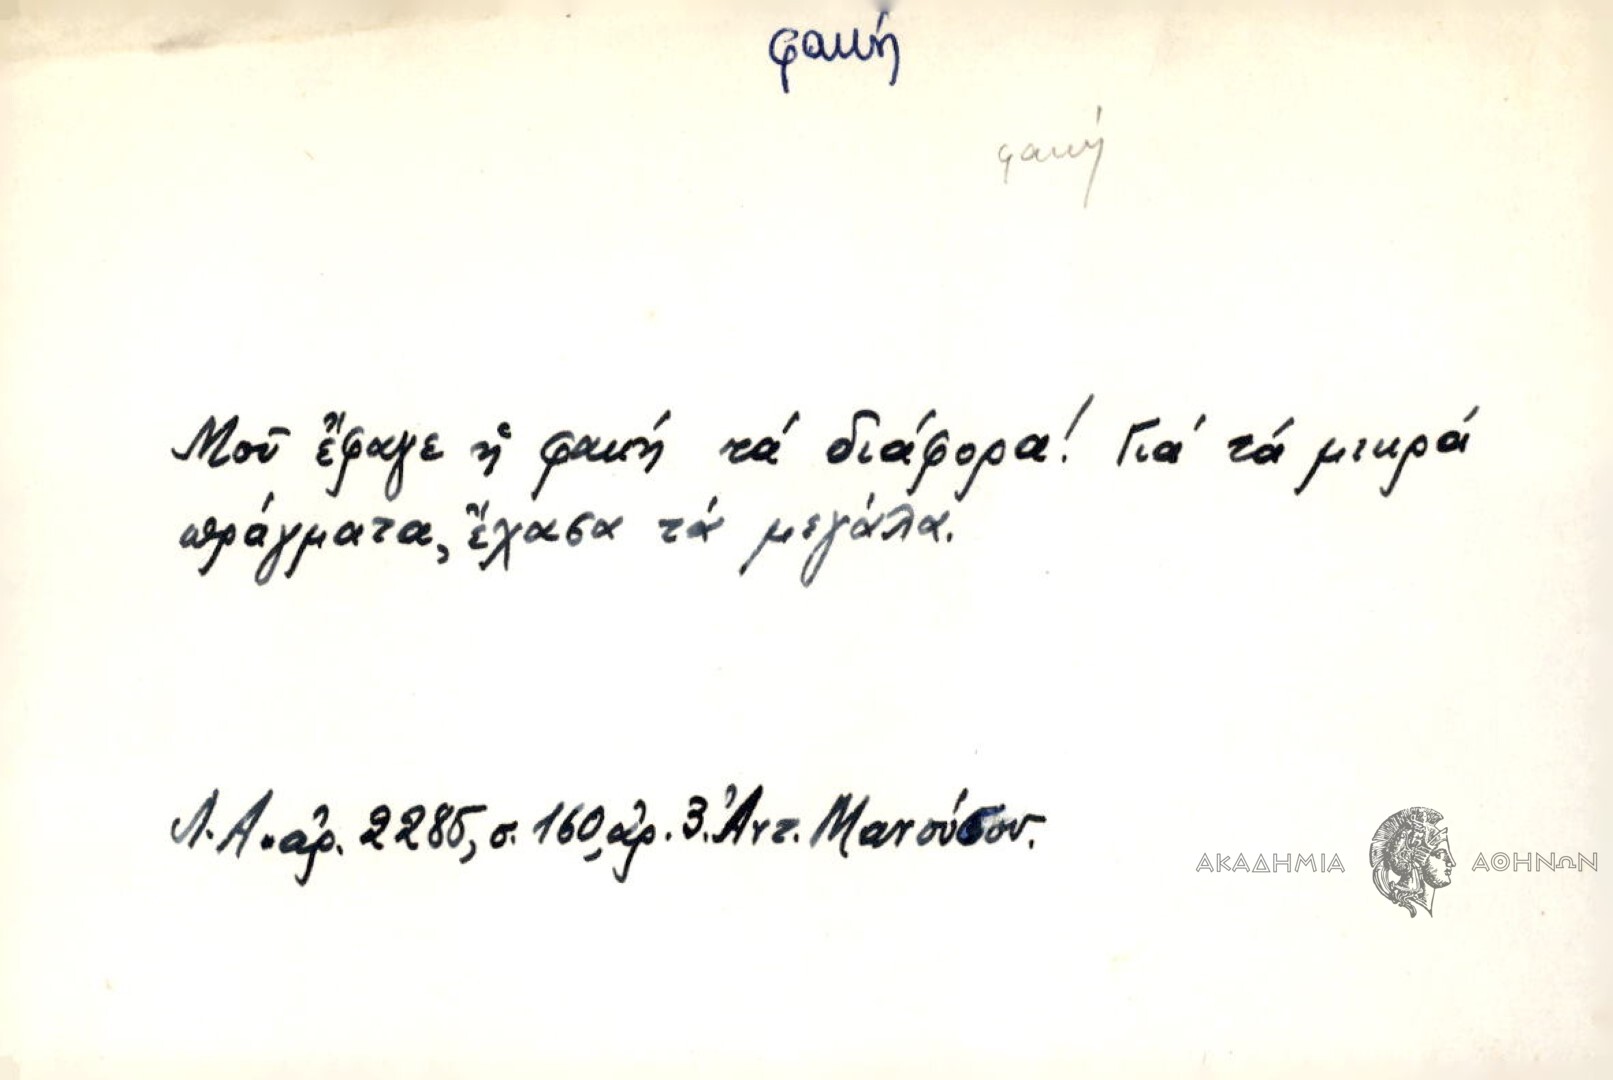 φακή
φακή
Μοῦ ἔφαγε ἡ φακή τά διάφορα! Γιά τά μικρά
πράγματα, ἔχασα τά μεγάλα.
Λ.Α. ἀρ. 2285, σ. 160, ἀρ. 3. Ἀντ. Μανούσου.
ΑΚΑΔΗΜΙΑ ΑΘΗΝΩΝ